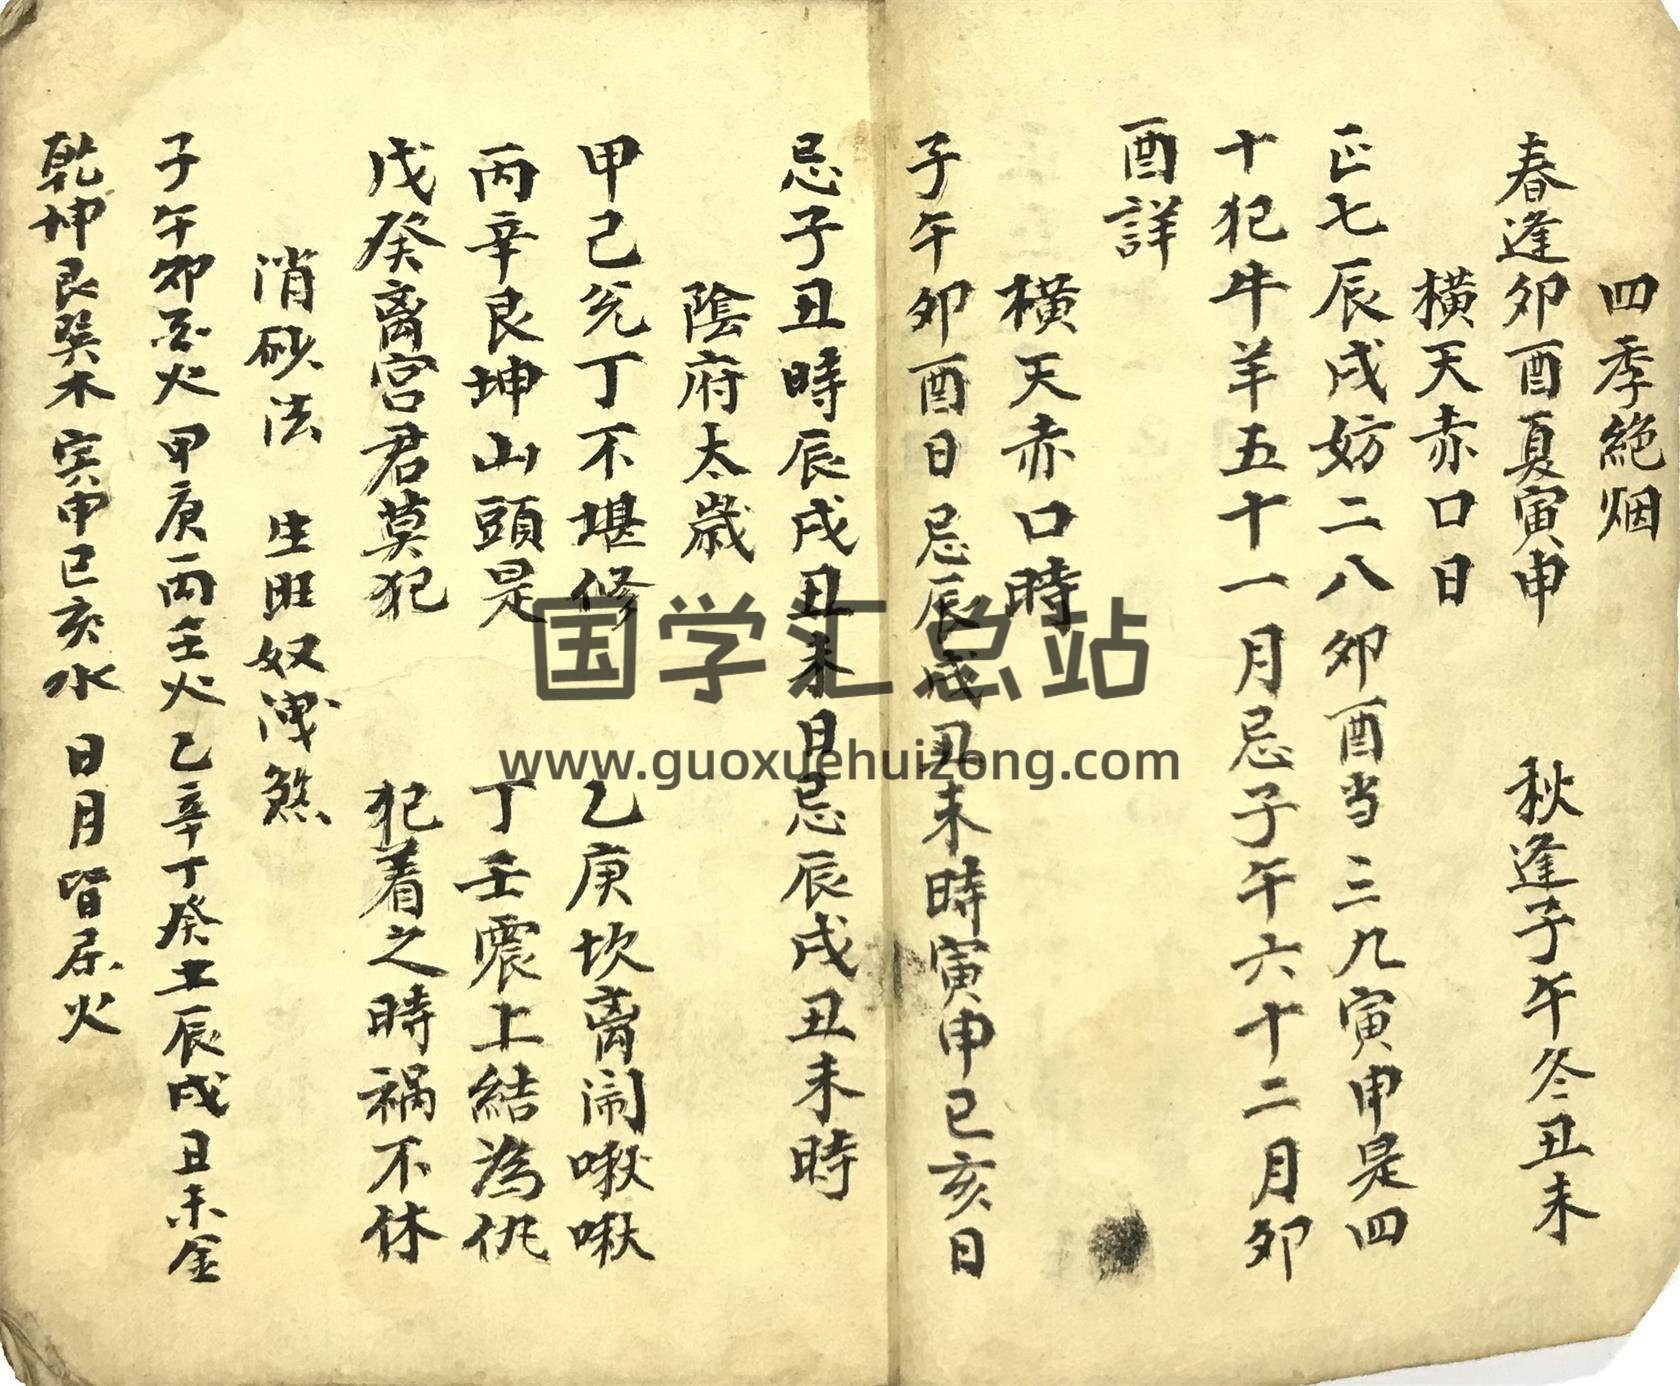 四季絕烟
春逢卯酉夏寅申 秋逢子午冬丑未
橫天赤口日
正七辰戌妨二八卯酉当三九寅申是四
十犯牛羊五十一月忌子午六十二月卯
酉詳
橫天赤口時
子午卯酉日忌辰戌丑未時寅申巳亥日
忌子丑時辰戌丑未日忌辰戌丑未時
陰府太歲
甲己兊丁不堪修 乙庚坎离闹啾啾
丙辛艮坤山頭是 丁壬震上結為仇
戊癸离宮君莫犯 犯着之時祸不休
消砂法 生旺奴洩煞
子午卯酉火甲庚丙壬火乙辛丁癸土辰戌丑未金
乾坤艮巽木寅申巳亥水日月皆屬火
国学汇总站
www.guoxuehuizong.com